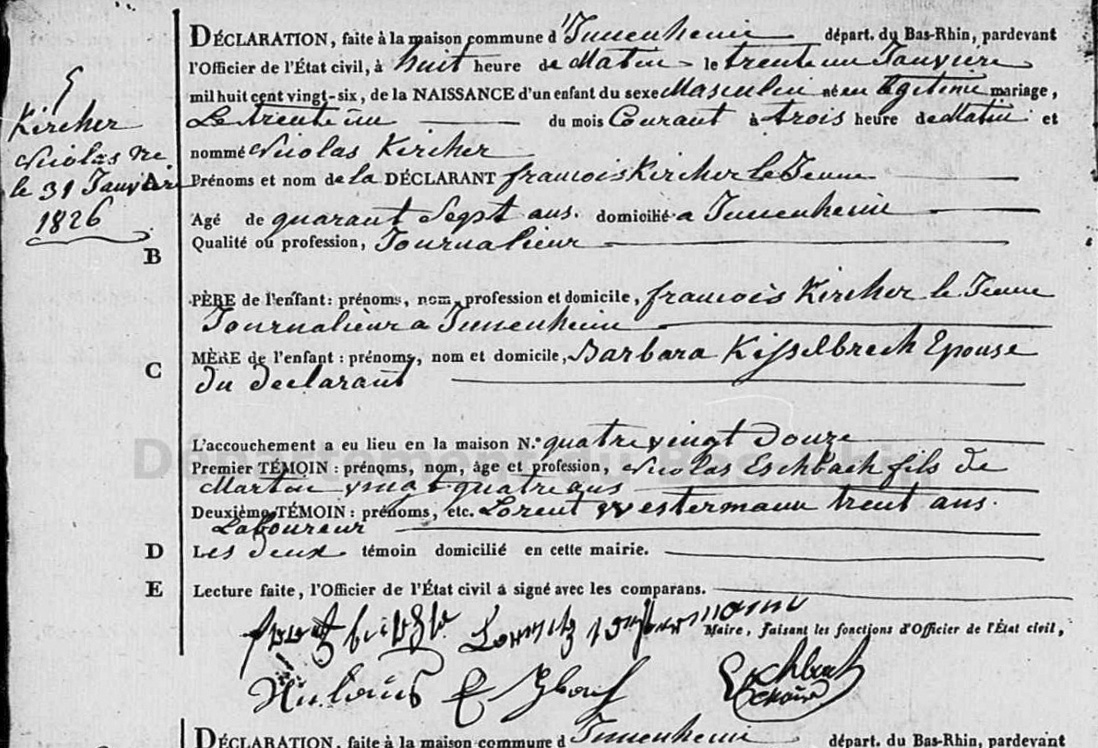 DÉCLARATION, faite à la maison commune d'Innenheim départ. du Bas-Rhin, pardevant
l'Officier de l'État civil, à huit heure de Matin le trente un Janviere
mil huit cent vingt-six, de la NAISSANCE d'un enfant du sexe Masculin né en legitime mariage,
Le trente un du mois Courant à trois heure de Matin et
nommé Nicolas Kircher
5
Kircher
Nicolas ne
le 31 Janvier
1826
A
Prénoms et nom de la DÉCLARANT francois Kircher le Jeune
Agé de quarant Sept ans. domicilié a Innenheim
Qualité ou profession, Journalieur
B
PÈRE de l'enfant: prénoms, nom, profession et domicile, francois Kircher le Jeune
Journalieur a Innenheim
MÈRE de l'enfant: prénoms, nom et domicile, Barbara Kisselbrech Epouse
C
du declarant
L'accouchement a eu lieu en la maison N.° quatre vingt Douze
Département du Bas-Rhin
Premier TÉMOIN: prénoms, nom, âge et profession, Nicolas Eschbach fils de
Martin vingt quatre ans
Deuxième TÉMOIN: prénoms, etc. Lorent Westermann trent ans.
Laboureur
D
Les deux témoin domicilié en cette mairie.
E
Lecture faite, l'Officier de l'État civil á signé avec les comparans.
Maire, faisant les fonctions d'Officier de l'État civil,
Eschbach
DÉCLARATION, faite à la maison commune d Innenheim départ. du Bas-Rhin, pardevant